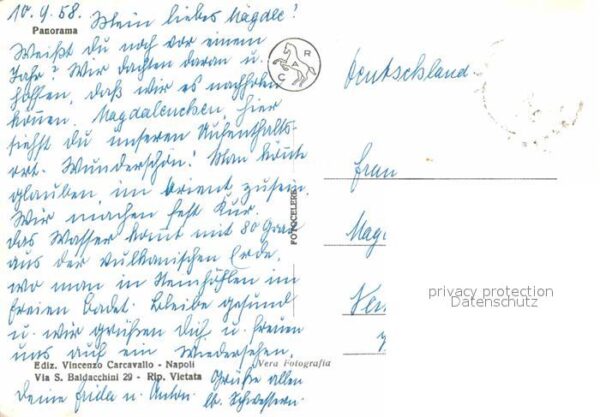 10.9.58. Mein liebes Magdle!
Panorama
Weißt du noch vor einem
Jahr? Wir dachten daran u.
hoffen, daß wir es nachholen
können. Magdalenchen, hier
siehst du unseren Aufenthalts-
ort. Wunderschön! Man könnte
glauben, im Orient zu sein.
Wir machen fest Kur.
Das Wasser kommt mit 80 Grad
aus der vulkanischen Erde,
wo man in Steinhöhlen im
Freien badet. Bleibe gesund
u. wir grüßen Dich u. freuen
uns auf ein Wiedersehen.
Ediz. Vincenzo Carcavallo - Napoli
Via S. Baldacchini 29 - Rip. Vietata
Grüße allen
Deine Frida u. Anton.
Schwestern.
C A R
FOTOCELERE
Vera Fotografia
Deutschland
Frau
Mag
privacy protection
Datenschutz